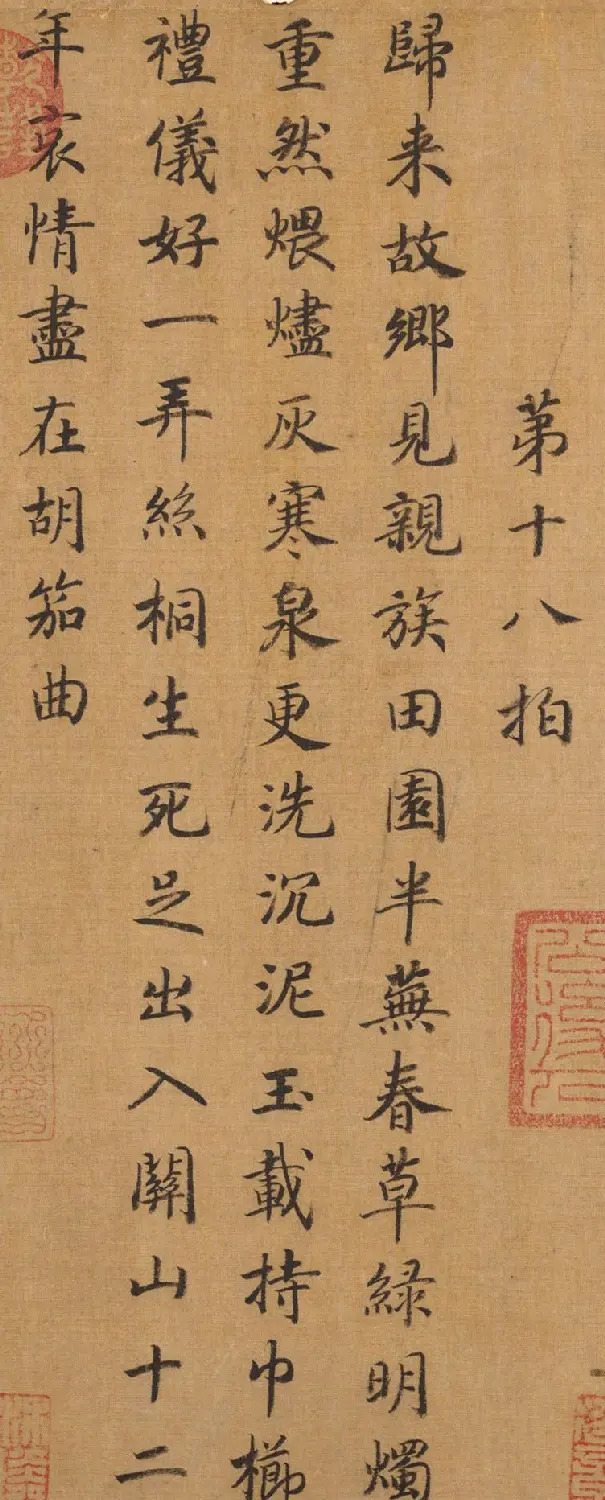 苐十八拍
歸来故鄉見親族田園半蕪春草緑明燭
重然煨燼灰寒泉更洗沉泥玉載持巾櫛
禮儀好一弄絲桐生死足出入關山十二
年哀情盡在胡笳曲